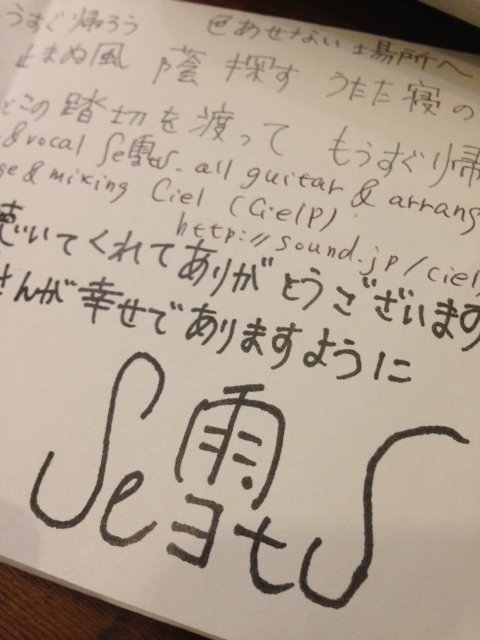 うすぐ帰ろう 色あせない場所へ
止まぬ風 蔭 探す うたた寝の
とこの踏切を渡って もうすぐ帰
& vocal Se雪ts. all guitar & arrang
ge & mixing Ciel (CielP)
http://sound.jp/ciel
聴いてくれてありがとうございます
さんが幸せでありますように
Se雪ts